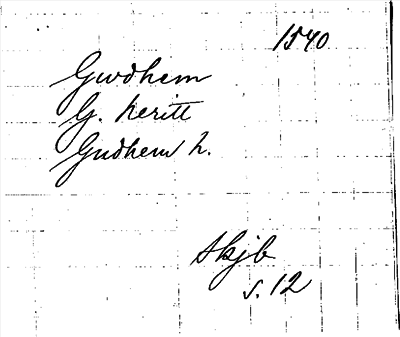 1540
Gwdhem
G. heritt
Gudhem h.
skjb
s. 12